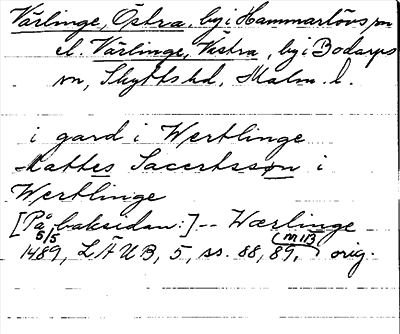 Värlinge, Östra, by i Hammarlövs sn
el. Värlinge, Västra, by i Bodarps
sn, Skytts hd, Malm. l.
i gard i Wertlinge
Mattes Sacertsson i
Wertlinge
[På baksidan:] -- Wærlinge
5/5 (m 1B)
1489, LÄUB, 5, ss. 88, 89, orig.